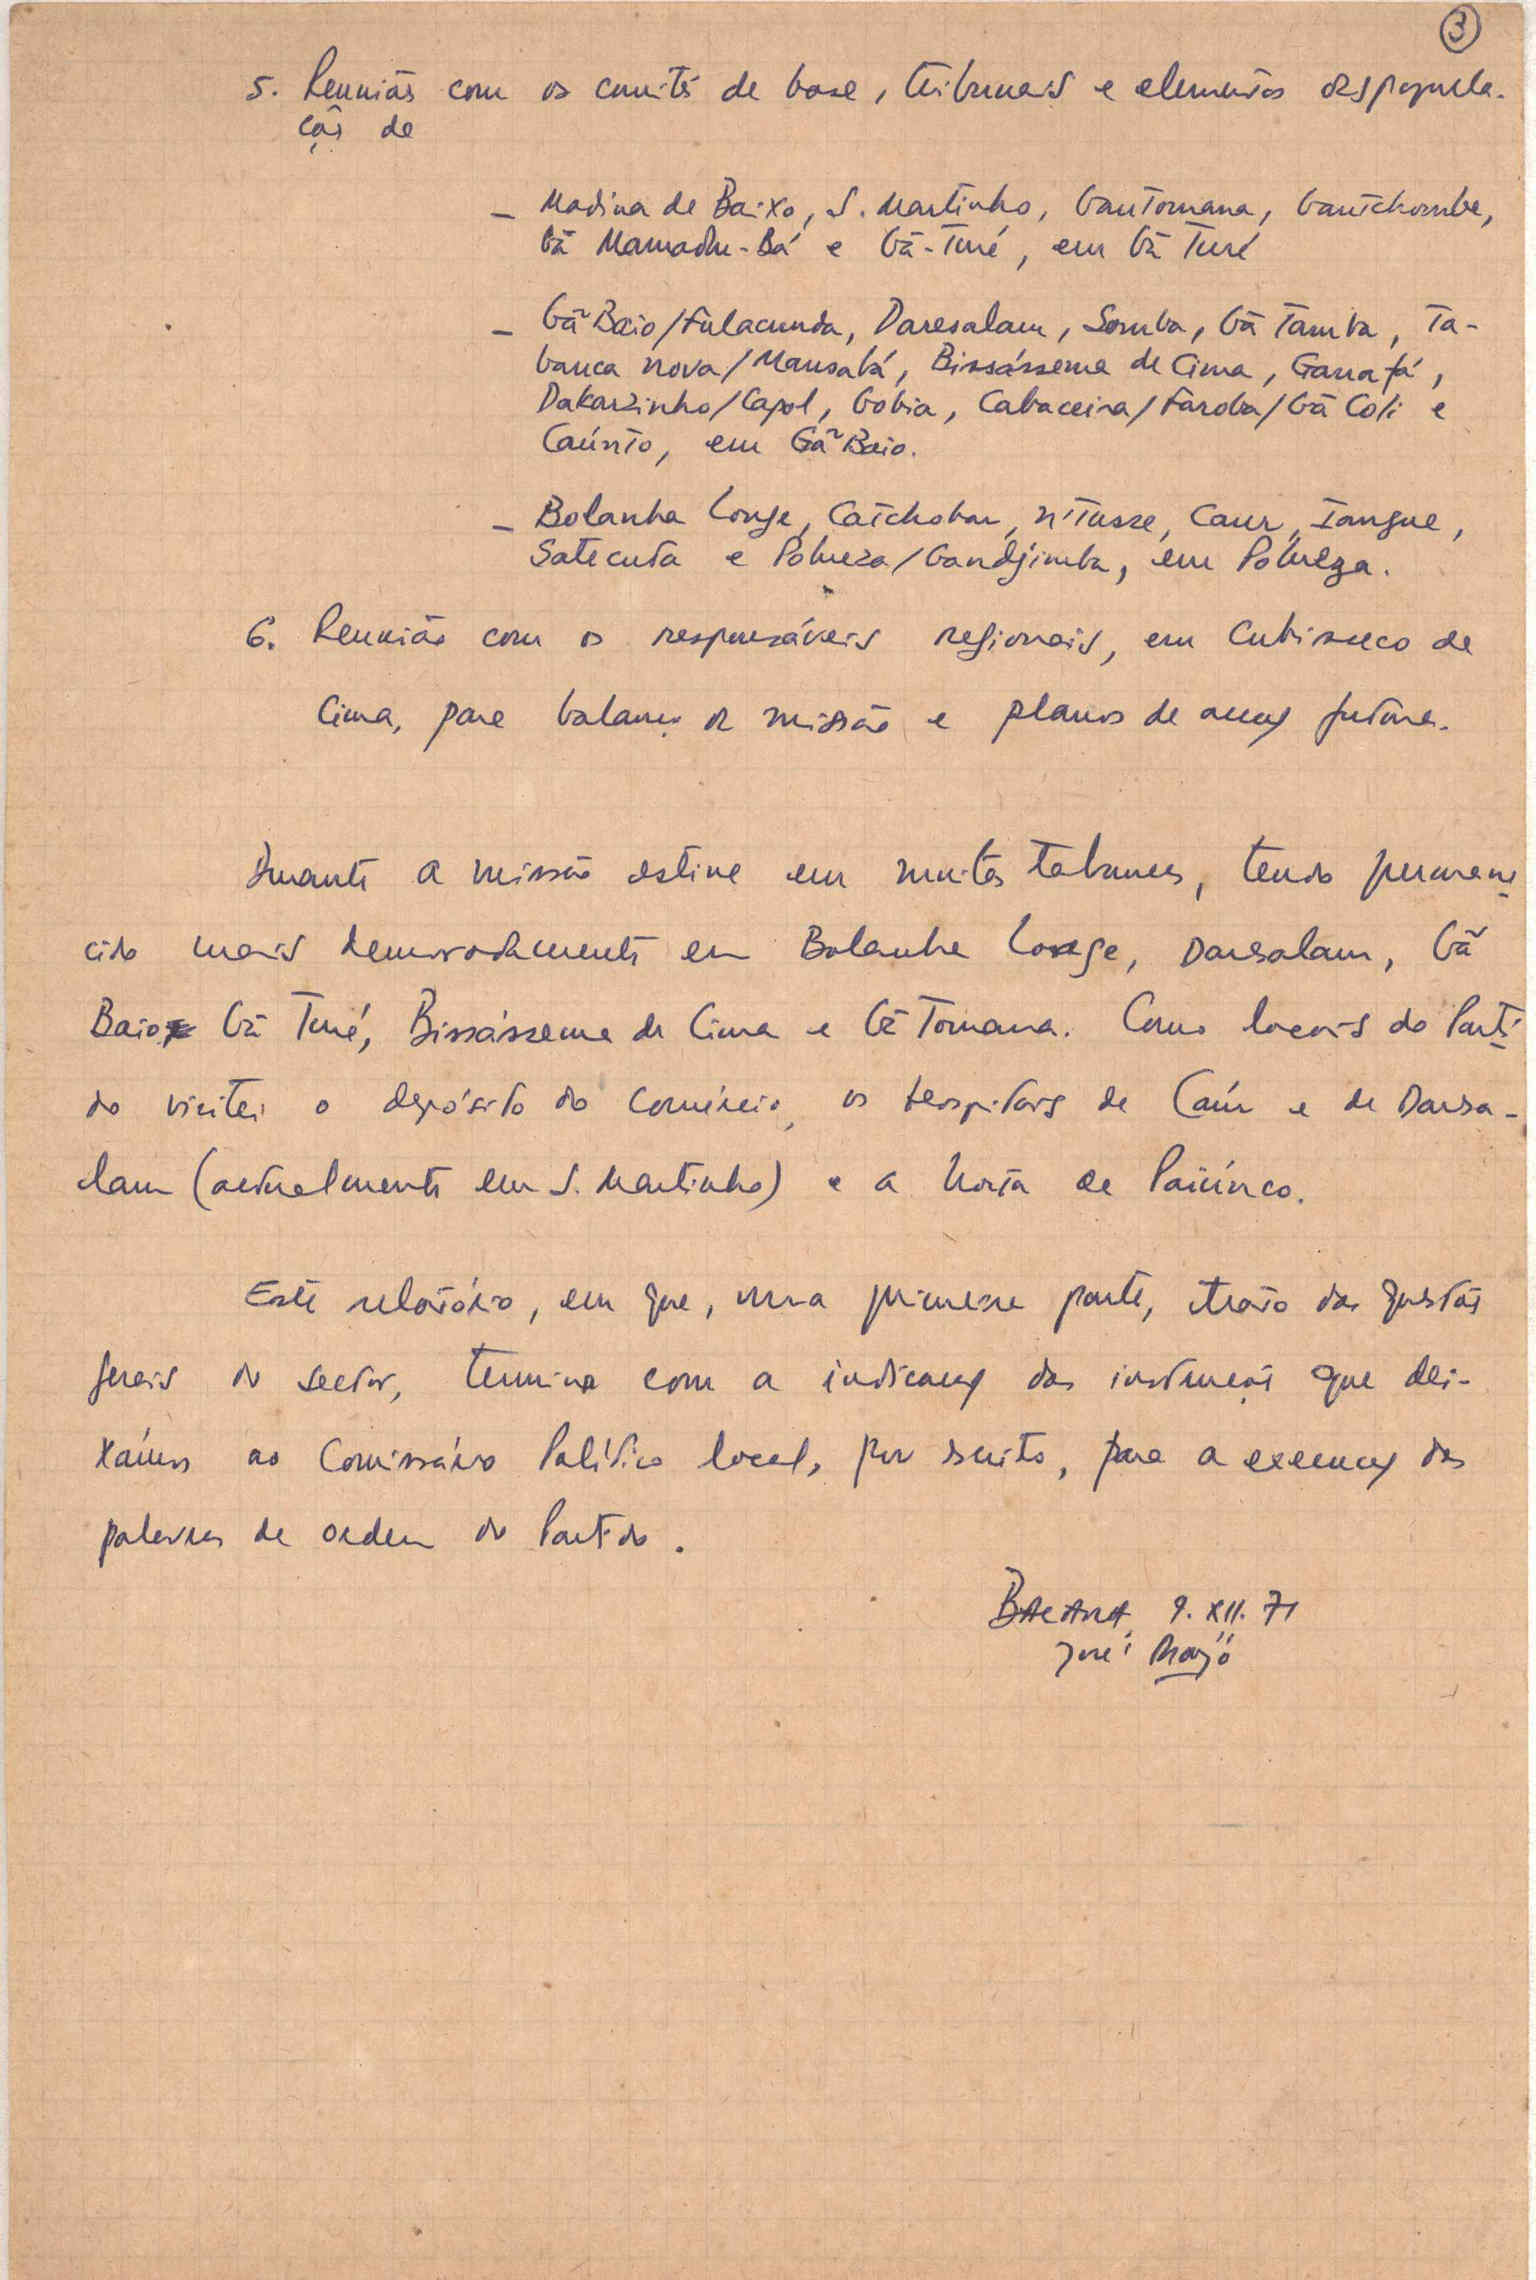 3
5. Reunião com os comités de base, tribunais e elementos das popula-
ção de
– Madina de Baixo, S. Martinho, Gantomana, Gantchomba,
Gã Mamadu-Bá e Gã-Turé, em Gã Turé
– Gã Baio/Fulacunda, Daresalam, Somba, Gã Tamba, Ta-
banca nova/Mansabá, Bissásseme de Cima, Ganafá,
Dakarzinho/Capol, Gobia, Cabaceira/Faroba/Gã Coli e
Caúnto, em Gã Baio.
– Bolanha Longe, Catchobar, N'Tusse, Caur, Iangue,
Satecuta e Pobreza/Gandjimba, em Pobreza.
6. Reunião com os responsáveis regionais, em Cubisseco de
Cima, para balanço da missão e planos de acção futura.
Durante a missão estive em muitas tabancas, tendo permane
cido mais demoradamente em Bolanha Longe, Darsalam, Gã
Baio, Gã Turé, Bissásseme de Cima e Gã Tomana. Como locais do Parti
do visitei o depósito do comércio, os hospitais de Caúr e de Darsa-
lam (actualmente em S. Martinho) e a horta de Paiúnco.
Este relatório, em que, numa primeira parte, trato das questões
gerais do sector, termina com a indicação das instruções que dei-
xámos ao Comissário Político local, por escrito, para a execução das
palavras de ordem do Partido.
9. XII. 71
José Araújo